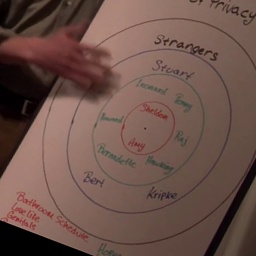 of Privacy
Strangers
Stuart
Leonard Penny
Sheldon
Howard
Raj
Amy
Bernadette
Hawking
Bert
Kripke
Bathroom Schedule
Love life
Genitals